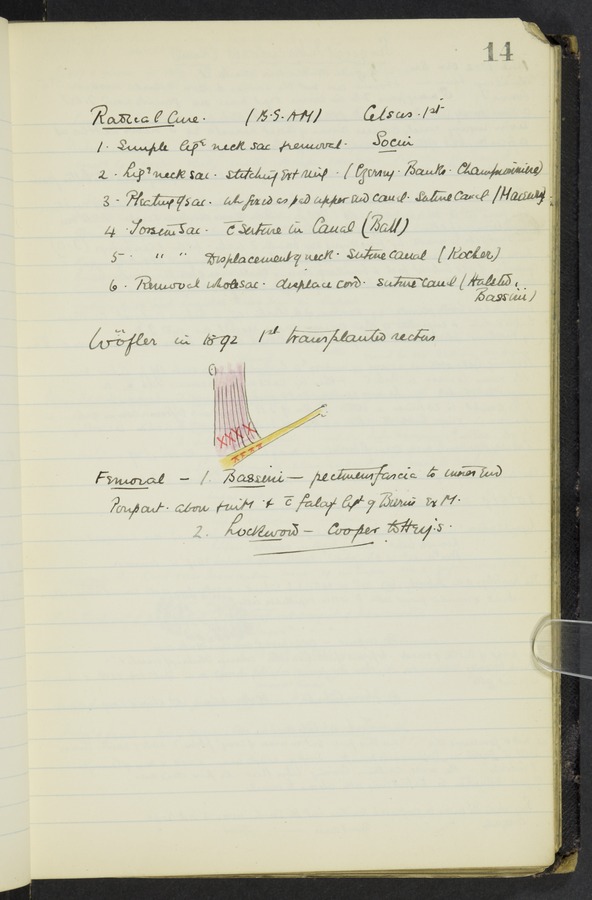 14
Radical Cure. Celsus. 1st
1. Simple ligre neck sac removal. Socin
2. Ligre neck sac. stitching Ext ring. (Czerny. Banks. Championnière)
3. of sac. fixed as pad upper end canal. Suture Canal (Macewen)
4. Torsion Sac. c̄ Suture in Canal (Ball)
5. " " Displacement of neck. Suture canal (Kocher)
6. Removal whole sac. displace cord. suture canal (Halsted.
Bassini)
Wöfler in 1892 1st transplanted rectus
Femoral - 1. Bassini - pectineus fascia to inner end
Poupart. above & c̄ falcf ligt of Burns
2. Lockwood - Cooper to Hey's.